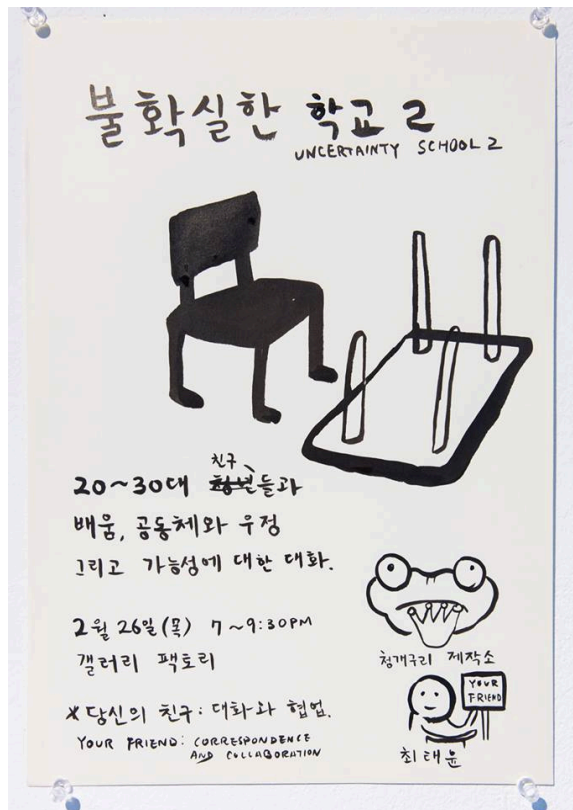 불확실한 학교 2
UNCERTAINTY SCHOOL 2
친구
20~30대 청년들과
배움, 공동체와 우정
그리고 가능성에 대한 대화.
2월 26일(목) 7~9:30PM
갤러리 팩토리
*당신의 친구: 대화와 협업.
YOUR FRIEND: CORRESPONDENCE
AND COLLABORATION
청개구리 제작소
YOUR
FRIEND
최태윤